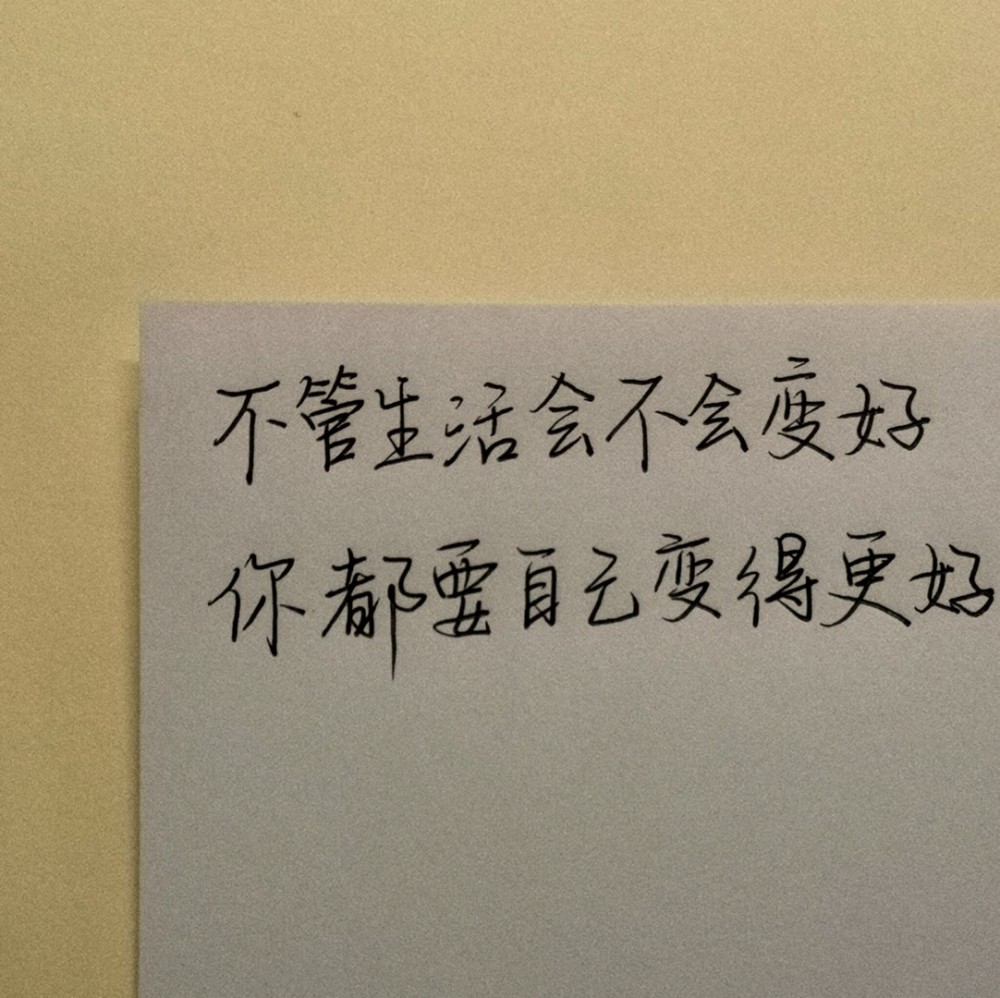 不管生活会不会变好
你都要自己变得更好